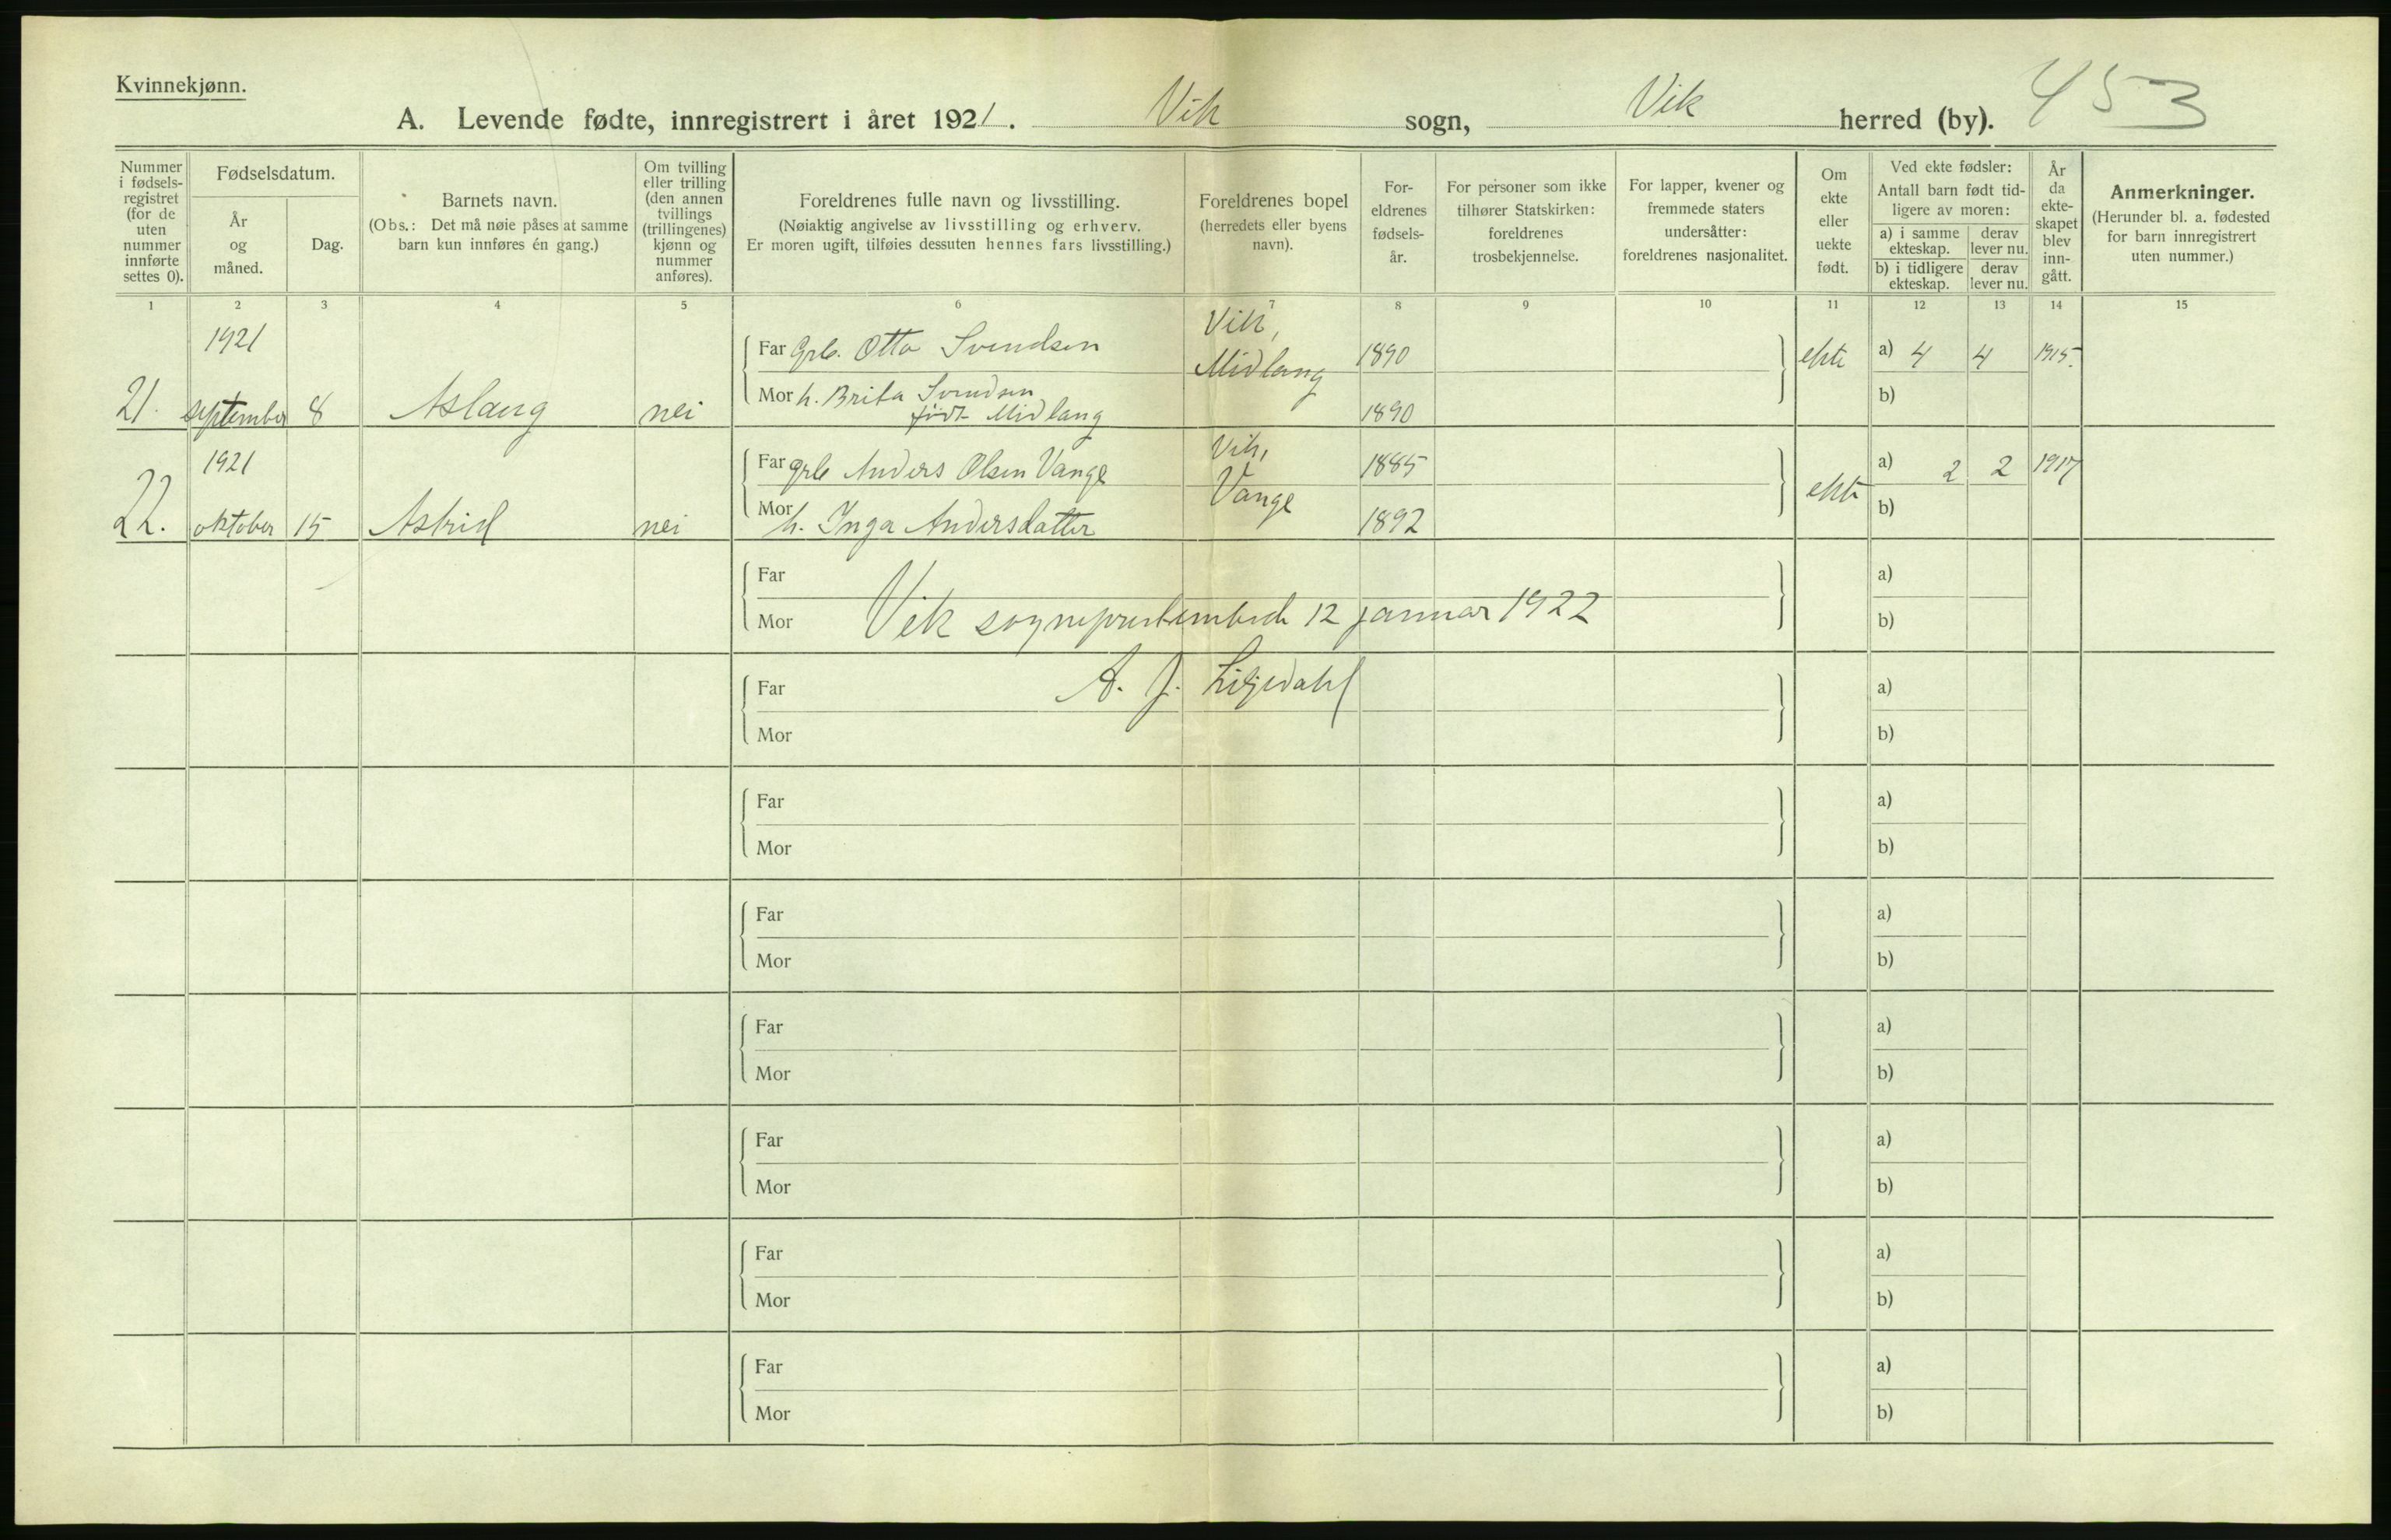 Kvinnekjønn.
A. Levende fødte, innregistrert i året 1921. Vik sogn, Vik herred (by). 453
Nummer i fødsels-registret (for de uten nummer innførte settes 0).
Fødselsdatum.
År og måned.
Dag.
Barnets navn.
(Obs.: Det må nøie påses at samme barn kun innføres én gang.)
Om tvilling eller trilling (den annen tvillings (trillingenes) kjønn og nummer anføres).
Foreldrenes fulle navn og livsstilling.
(Nøiaktig angivelse av livsstilling og erhverv.
Er moren ugift, tilføies dessuten hennes fars livsstilling.)
Foreldrenes bopel
(herredets eller byens navn).
For-eldrenes fødsels-år.
For personer som ikke tilhører Statskirken: foreldrenes trosbekjennelse.
For lapper, kvener og fremmede staters undersåtter: foreldrenes nasjonalitet.
Om ekte eller uekte født.
Ved ekte fødsler:
Antall barn født tid-ligere av moren:
a) i samme ekteskap. derav lever nu.
b) i tidligere ekteskap. derav lever nu.
År da ekte-skapet blev inn-gått.
Anmerkninger.
(Herunder bl. a. fødested for barn innregistrert uten nummer.)
1 2 3 4 5 6 7 8 9 10 11 12 13 14 15
1921 Far Grb. Otto Svendsen Vik, Midlang 1890 ekte a) 4 4 1915.
21. september 8 Aslaug nei Mor h. Brita Svendsen født Midlang 1890 b)
1921 Far grb Anders Olsen Vange Vik, Vange 1885 ekte a) 2 2 1917
22. oktober 15 Astrid nei Mor h. Inga Andersdatter 1892 b)
Far a)
Mor Vik sogneprestembede 12 januar 1922 b)
Far A. J. Liljedahl a)
Mor b)
Far a)
Mor b)
Far a)
Mor b)
Far a)
Mor b)
Far a)
Mor b)
Far a)
Mor b)
Far a)
Mor b)